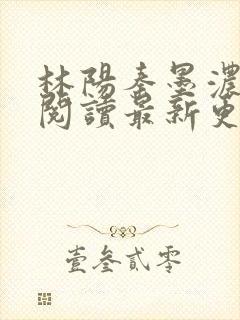 林陽秦墨濃
閱讀最新更
壹叁貳零